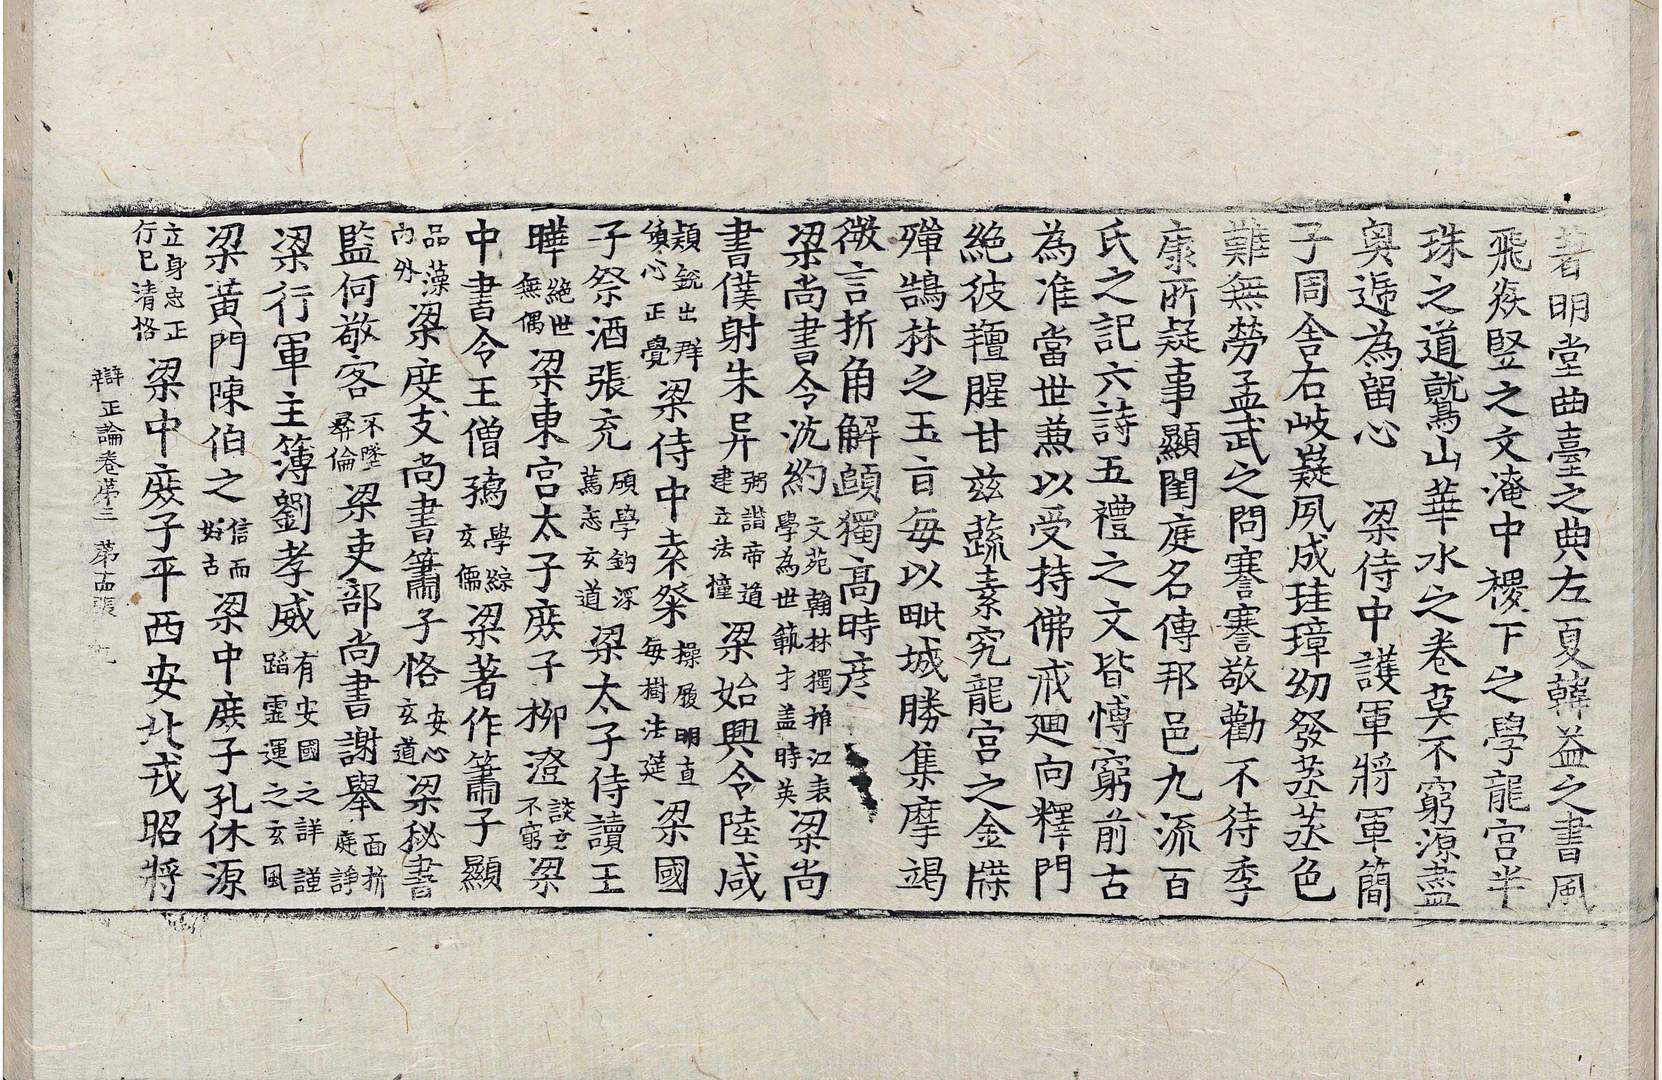 著明堂曲臺之典左夏韓益之書風
飛焱竪之文淹中稷下之學龍宮半
珠之道鷲山華水之卷莫不窮源盡
奥遞為留心　梁侍中護軍將軍簡
子周舍右岐嶷夙成珪璋幼發蒸蒸色
難無勞孟武之問謇謇敬勸不待季
康所疑事顯閨庭名傳邦邑九流百
氏之記六詩五禮之文皆博窮前古
為准當世兼以受持佛戒迴向釋門
絕彼羶腥甘茲蔬素究龍宮之金牒
殫鵠林之玉言每以毗城勝集摩竭
微言折角解頤獨高時彥
梁尚書令沈約文苑翰林獨推江表學為世範才盖時英梁尚
書僕射朱异弼諧帝道建立法幢梁始興令陸咸
穎銳出群傾心正覺梁侍中朱粲操履明直每樹法筵梁國
子祭酒張充碩學鉤深篤志玄道梁太子侍讀王
曄絕世無偶梁東宮太子庶子柳澄談玄不窮梁
中書令王僧孺學綜玄儒梁著作簫子顯
品藻內外梁度支尚書簫子恪安心玄道梁秘書
監何敬客不墜彛倫梁吏部尚書謝舉面折庭諍
梁行軍主簿劉孝威有安國之詳謹蹈靈運之玄風
梁黃門陳伯之信而好古梁中庶子孔休源
立身忠正行已清恪梁中庶子平西安北戎昭將
辯正論卷第三　第十四張